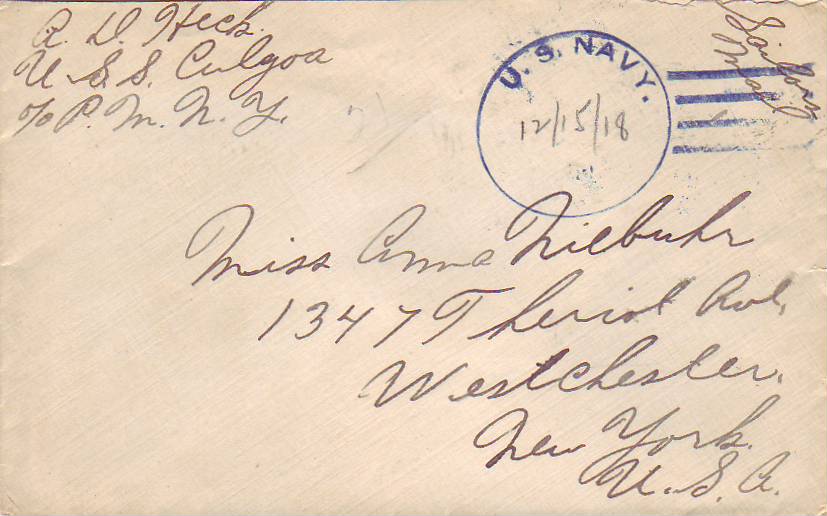 A. D. Heck
U. S. S. Culgoa
c/o P. M. N. Y.
U. S. NAVY.
12/15/18
Sailors
Mail
Miss Anna Niebuhr
1347 Theriot Ave.
Westchester.
New York.
U. S. A.